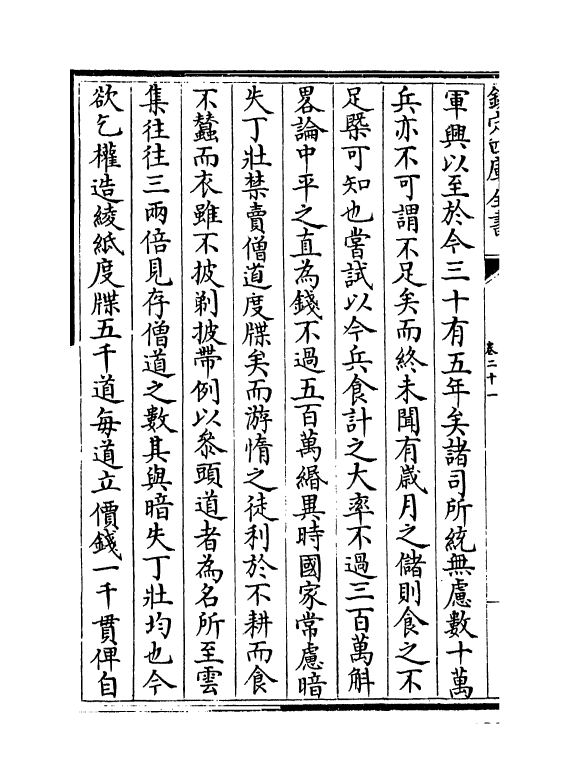 欽定四庫全書
卷二十一
軍興以至於今三十有五年矣諸司所統無慮數十萬
兵亦不可謂不足矣而終未聞有歳月之儲則食之不
足槩可知也嘗試以今兵食計之大率不過三百萬斛
畧論中平之直為錢不過五百萬緡異時國家常慮暗
失丁壯禁賣僧道度牒矣而游惰之徒利於不耕而食
不蠶而衣雖不披剃披帶例以叅頭道者為名所至雲
集往往三兩倍見存僧道之數其與暗失丁壯均也今
欲乞權造綾紙度牒五千道每道立價錢一千貫俾自